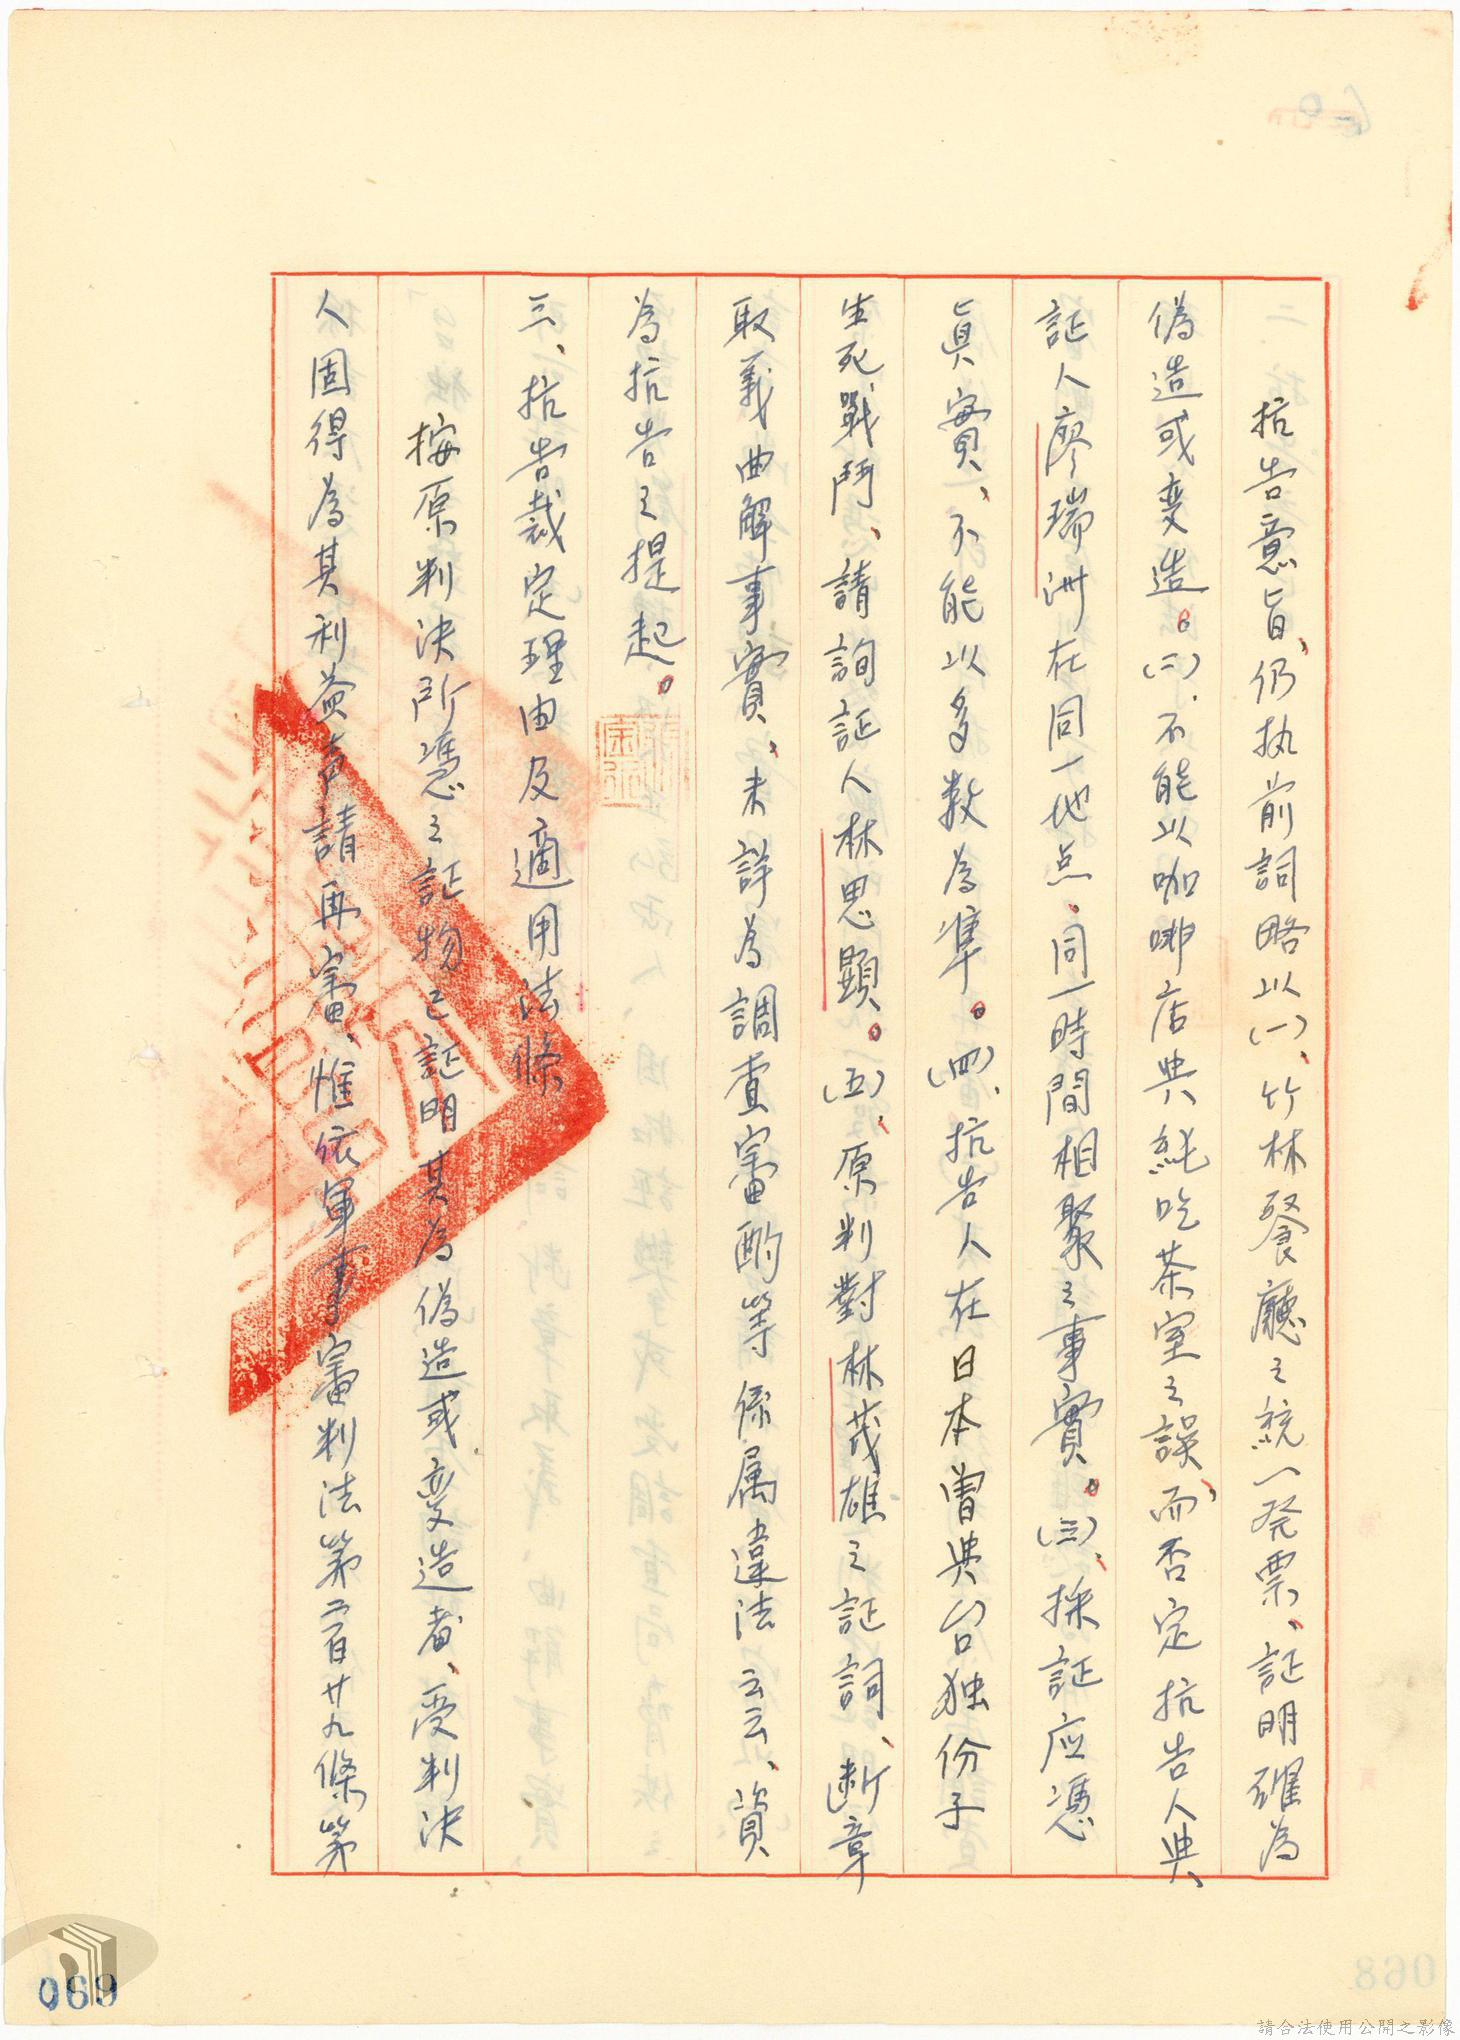 抗告意旨、仍执前詞略以(一)、竹林餐廳之統一発票、証明確為
偽造或变造。(二)、不能以咖啡店與純吃茶室之誤、而否定抗告人與、
証人廖瑞洲在同一地点、同一時間相聚之事實。(三)、採証应憑
眞實、不能以多数為準。(四)、抗告人在日本曽與台独份子
生死戰鬥、請詢証人林思顯。(五)、原判對林茂雄之証詞、断章
取義曲解事實、未詳為調查審酌等係属違法云云、資
為抗告之提起。
三、抗告裁定理由及適用法條
按原判決所憑之証物已証明其為偽造或变造者、受判決
人固得為其利益声請再審、惟依軍事審判法第二百廿九條第
069
068
請合法使用公開之影像